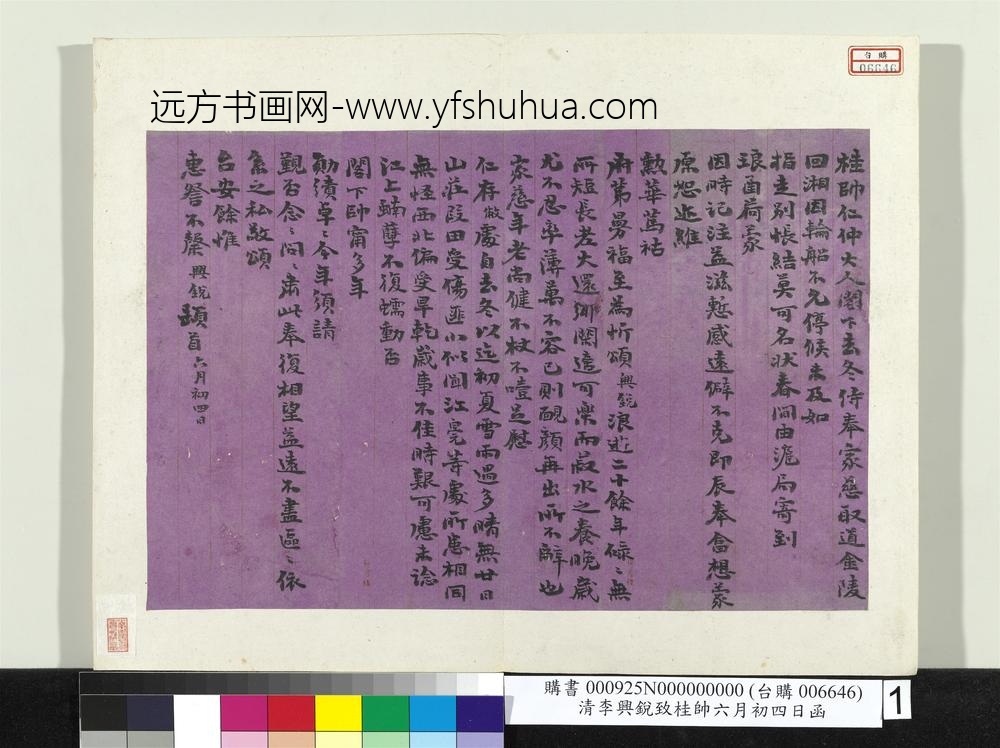 台購
06646
远方书画网-www.yfshuhua.com
桂帥仁仲大人閣下去冬侍奉家慈取道金陵
回湘因輪船不允停候未及如
指走別悵結莫可名狀春間由滬局寄到
琅函荷蒙
因時記注益滋慙感遠僻不克即辰奉畣想蒙
原恕近維
勲華篤祜
甬茀曼福至為忻頌興銳浪迹二十餘年碌〻無
所短長老大還鄉闗遠可樂而菽水之養晚歲
尤不忍率薄萬不容已則靦顏再出所不辭也
家慈年老尚健不杖不噎足慰
仁存敝處自去冬以迄初夏雪雨過多晴無廿日
山莊段田受傷匪小似聞江亳等處所患相同
無怪西北偏受旱乾歲事不佳時艱可慮未諗
江上蝻孽不復蠕動否
閣下帥甯多年
勛績卓〻今年須請
覲否念〻問〻肅此奉復相望益遠不盡區〻依
系之私敬頌
台安餘惟
惠詧不罄興銳頓首六月初四日
購書 000925N000000000 (台購 006646)
清李興銳致桂帥六月初四日函
1